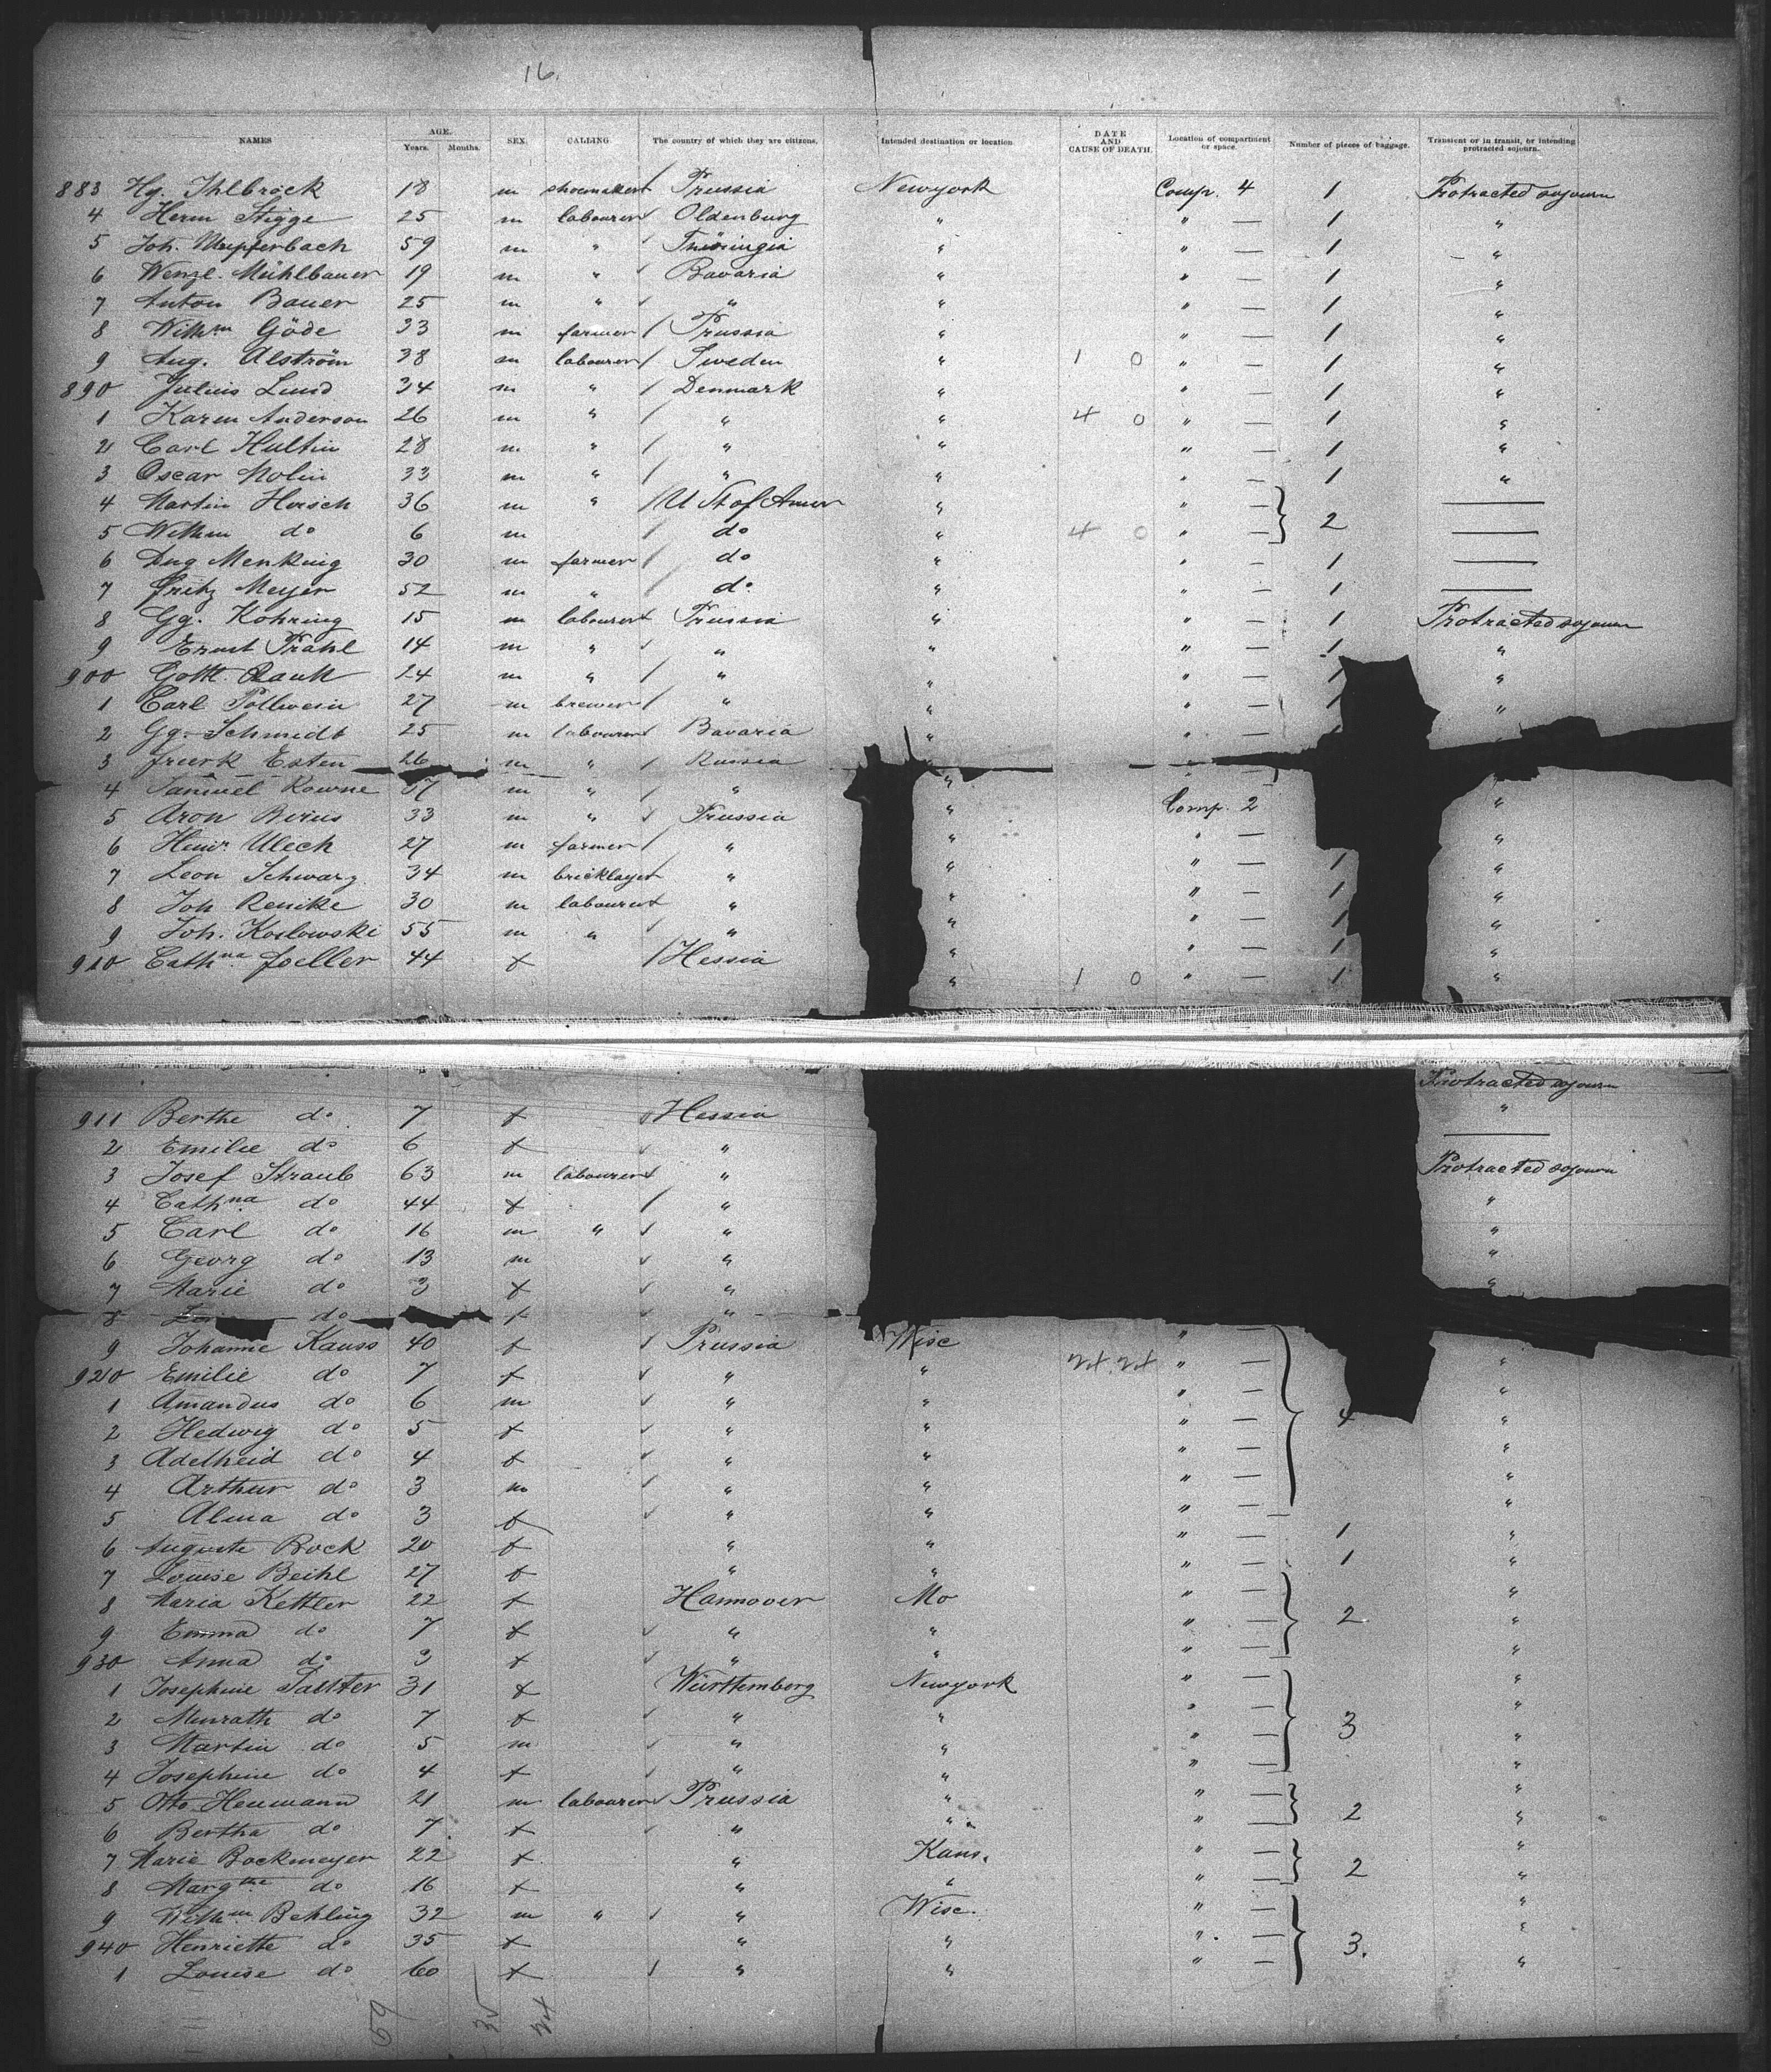 16.
NAMES AGE. Years. Months. SEX. CALLING The country of which they are citizens. Intended destination or location DATE AND CAUSE OF DEATH. Location of compartment or space. Number of pieces of baggage. Transient or in transit, or intending protracted sojourn.
883 Hg. Ihlbrock 18 m shoemaker Prussia Newyork Comp. 4 1 Protracted sojourn
4 Herm Stigge 25 m labourer Oldenburg " " — 1 "
5 Joh. 59 m " Thüringia " " — 1 "
6 Wenzl. Mühlbauer 19 m " Bavaria " " — 1 "
7 Anton Bauer 25 m " " " " — 1 "
8 Wilhm Göde 33 m farmer Prussia " " — 1 "
9 Aug. Alström 38 m labourer Sweden " 1 0 " — 1 "
890 Julius Lund 34 m " Denmark " " — 1 "
1 Karen Anderson 26 m " " " 4 0 " — 1 "
2 Carl Hultin 28 m " " " " — 1 "
3 Oscar Molin 33 m " " " " — 1 "
4 Martin Hirsch 36 m " U St of Amer " " — 2 —
5 Wilhm do 6 m do " 4 0 " — —
6 Aug Menking 30 m farmer do " " — 1 —
7 Fritz Meyer 52 m " do " " — 1 —
8 Gg. Kohring 15 m labourer Prussia " " — 1 Protracted sojourn
9 Ernst Prahl 14 m " " " " — 1 "
900 Gottl. Rauh 24 m " " " " — 1 "
1 Carl Pollwein 27 m brewer " " " — 1 "
2 Gg. Schmidt 25 m labourer Bavaria " " —
3 Esten 26 m " Russia "
4 Samuel Rowne 27 m " " " "
5 Aron Birus 33 m " Prussia " Comp. 2 "
6 Heinr. Ulech 27 m farmer " " " — "
7 Leon Schwarz 34 m bricklayer " " " — 1 "
8 Joh Renike 30 m labourer " " " — 1 "
9 Joh. Koslowski 55 m " " " " — 1 "
910 Cathna Joeller 44 f Hessia " 1 0 " — 1 "
Protracted sojourn
911 Berthe do 7 f Hessia "
2 Emilie do 6 f " —
3 Josef Straub 63 m labourer " Protracted sojourn
4 Cathna do 44 f " "
5 Carl do 16 m " " "
6 Georg do 13 m " "
7 Marie do 3 f " "
8 do f "
9 Johanne Kauss 40 f Prussia Wisc " —
920 Emilie do 7 f " " " — "
1 Amandus do 6 m " " " — "
2 Hedwig do 5 f " " " — 4 "
3 Adelheid do 4 f " " " — "
4 Arthur do 3 m " " " — "
5 Alma do 3 f " " " — "
6 Auguste Bock 20 f " " " — 1 "
7 Louise Beihl 27 f " " " — 1 "
8 Maria Kettler 22 f Hannover Mo " — "
9 Emma do 7 f " " " — 2 "
930 Anna do 3 f " " " — "
1 Josephine Sattler 31 f Württemberg Newyork " — "
2 do 7 f " " " — 3 "
3 Martin do 5 m " " " — "
4 Josephine do 4 f " " " — "
5 Otto Heumann 21 m labourer Prussia " " — 2 "
6 Bertha do 7 f " " " — "
7 Marie Bockmeyer 22 f " Kans. " — 2 "
8 Margthe do 16 f " " " — "
9 Wilhm Behling 32 m " " Wisc. " — "
940 Henriette do 35 f " " " — 3. "
1 Louise do 60 f " " " — "
59 35 24